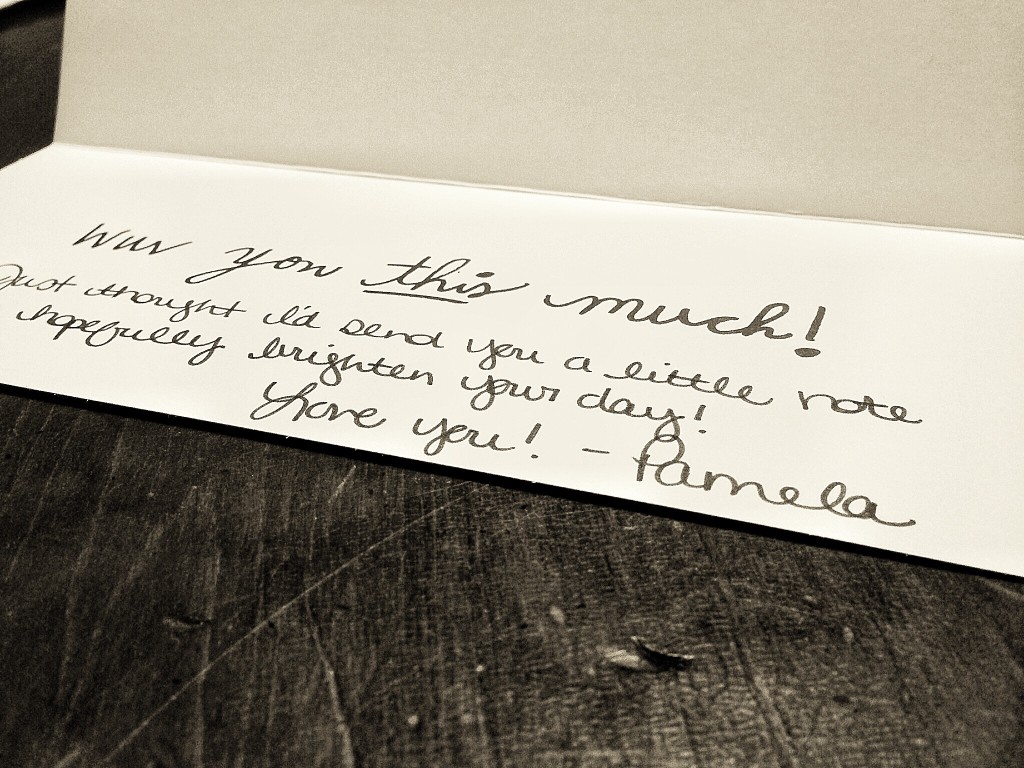 Wuv you this much!
Just thought I'd send you a little note
hopefully brighten your day!
Love you! - Pamela